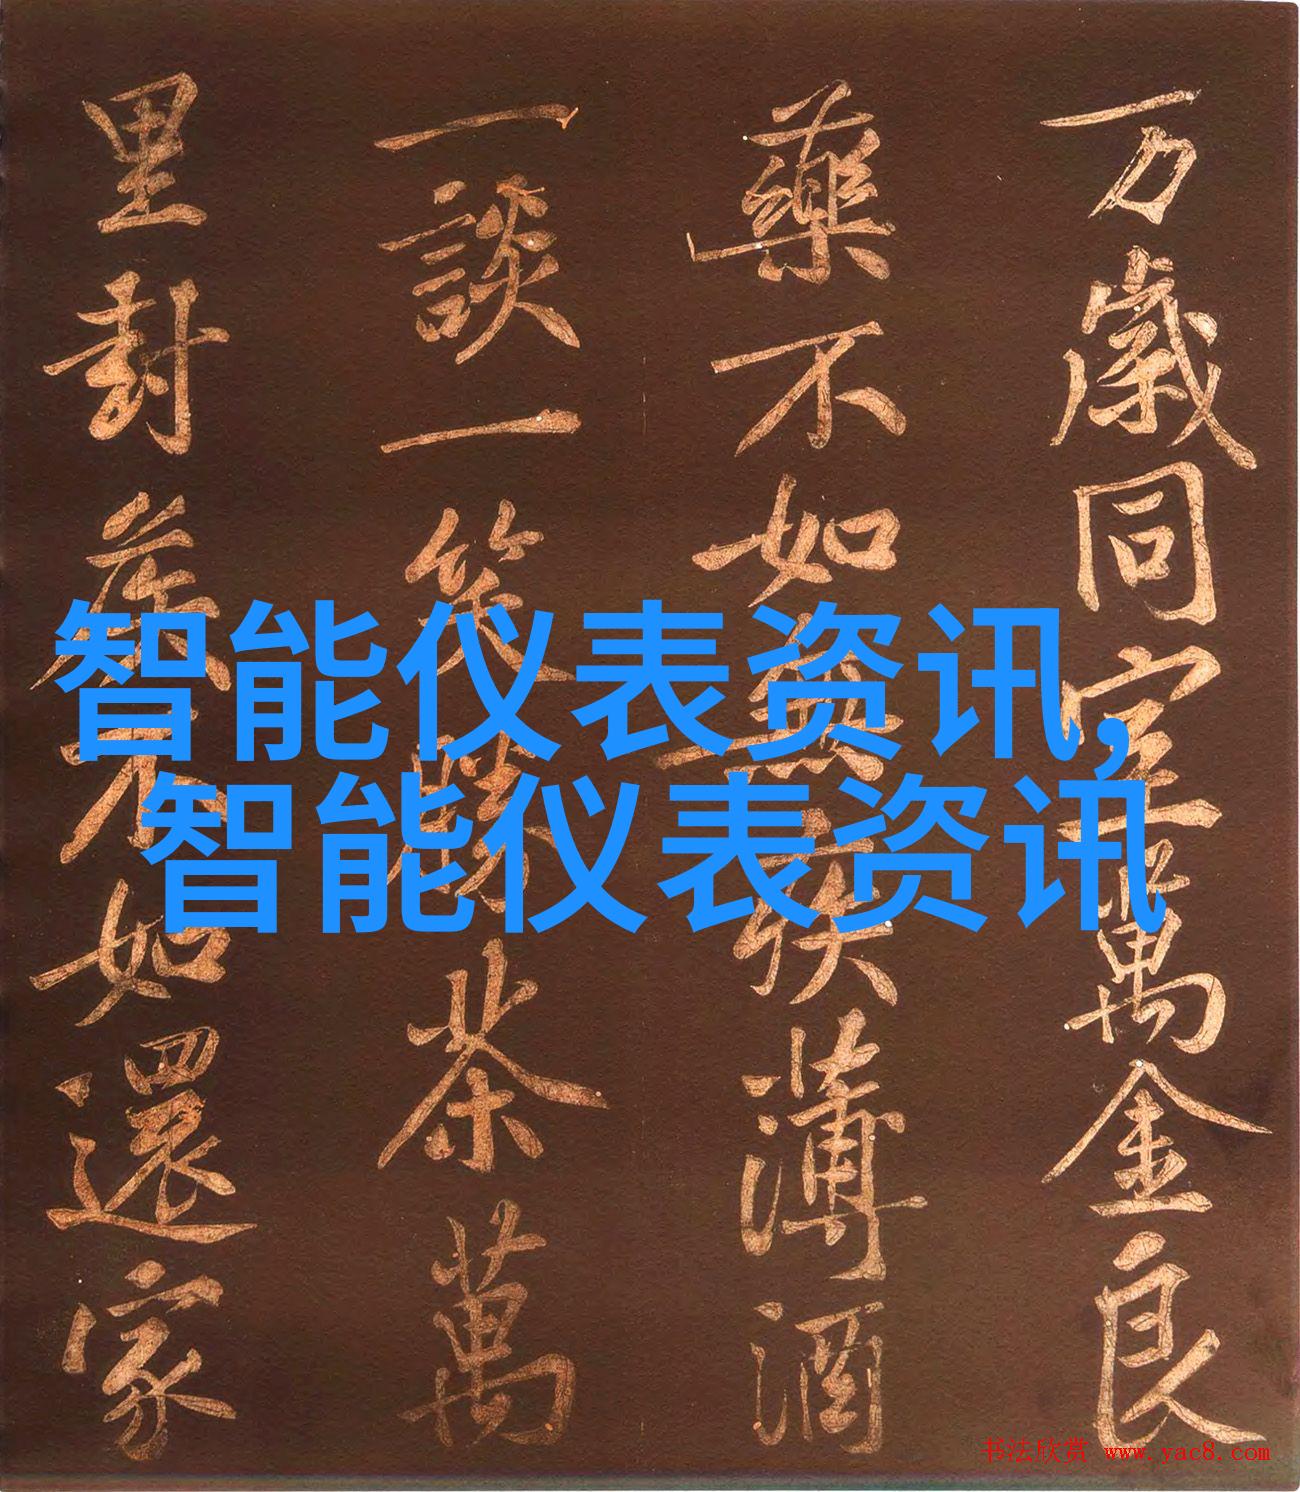 万歲同室萬金良
藥不如無疾薄酒
一談一笑勝茶萬
里封侯不如還家
智能仪表资讯,
智能仪表资讯
书法欣赏 www.yac8.com